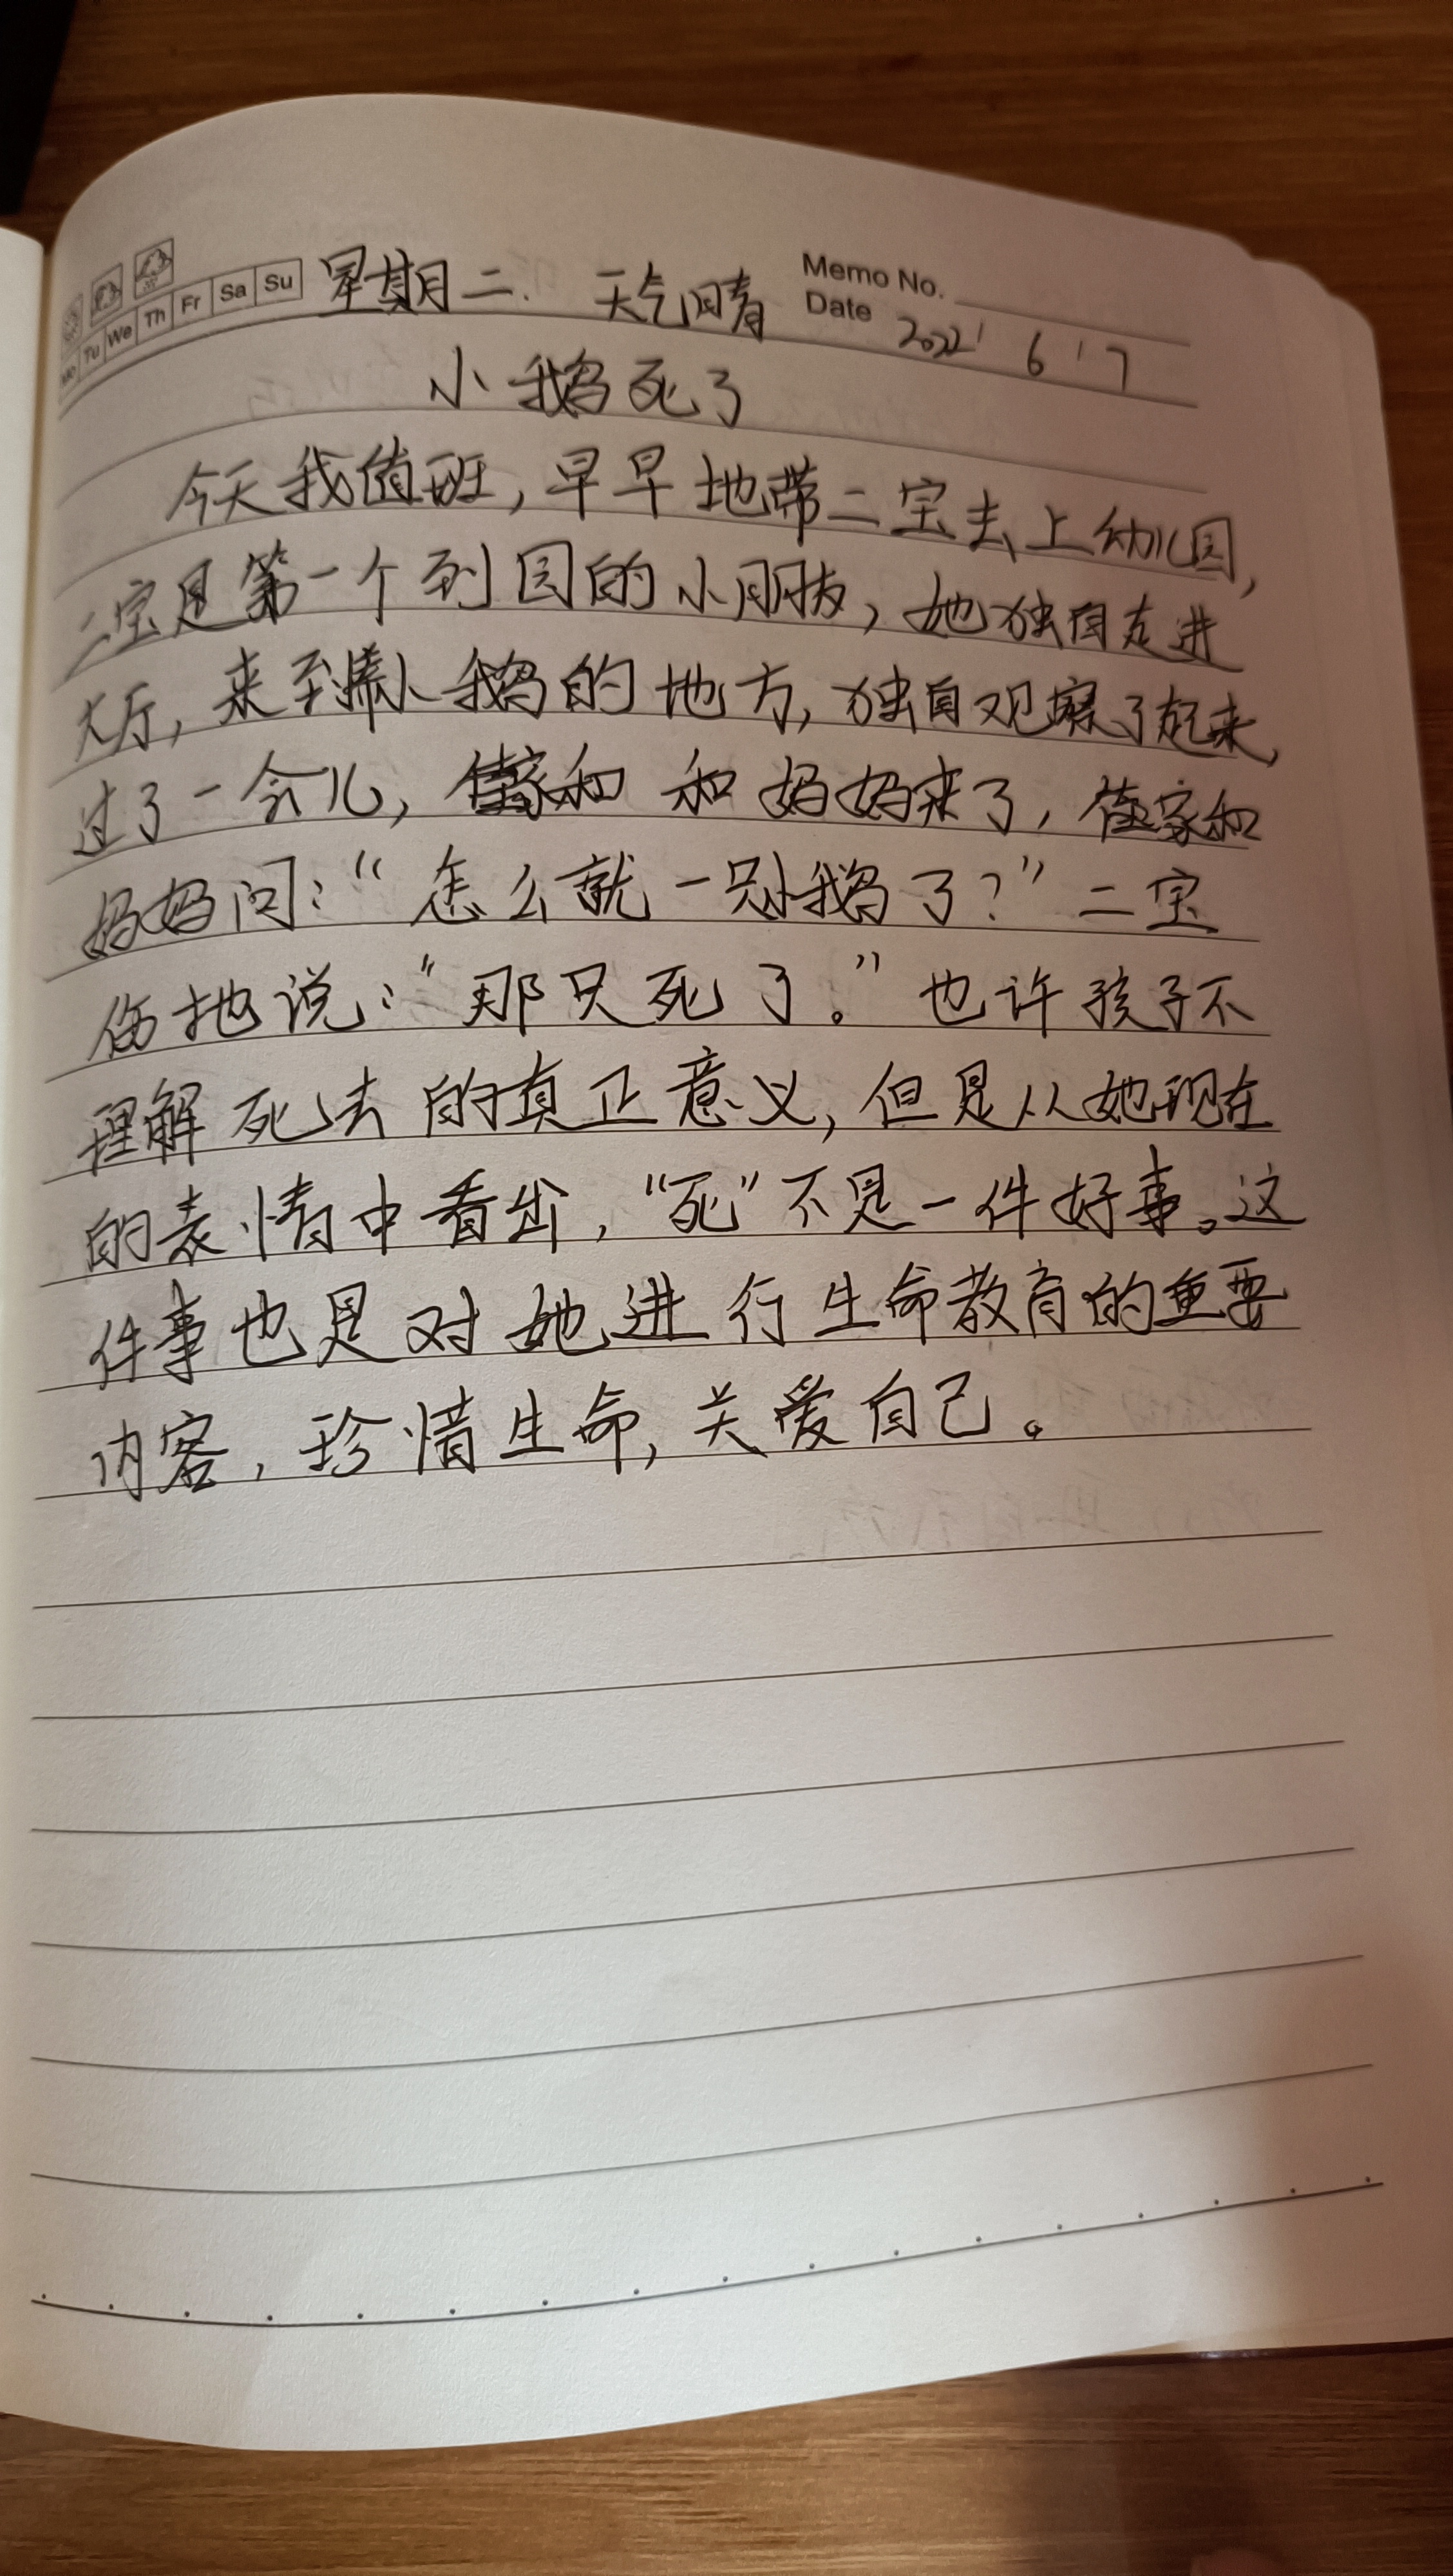 Memo No.
Mo Tu We Th Fr Sa Su 星期二. 天气晴 Date 2022 6 7
小鹅死了
今天我值班,早早地带二宝去上幼儿园,
二宝是第一个到园的小朋友,她独自走进
大厅,来到小鹅的地方,独自观察了起来,
过了一会儿,家和 和妈妈来了,家和
妈妈问:“怎么就一只小鹅了?”二宝
伤地说:“那只死了。”也许孩子不
理解死去的真正意义,但是从她现在
的表情中看出,“死”不是一件好事。这
件事也是对她进行生命教育的重要
内容,珍惜生命,关爱自己。